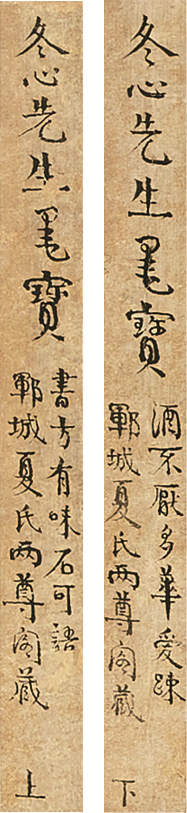 冬心先生墨寶
書方有味石可語
鄆城夏氏两尊阁藏
上
冬心先生墨寶
酒不厭多華愛踈
鄆城夏氏两尊阁藏
下